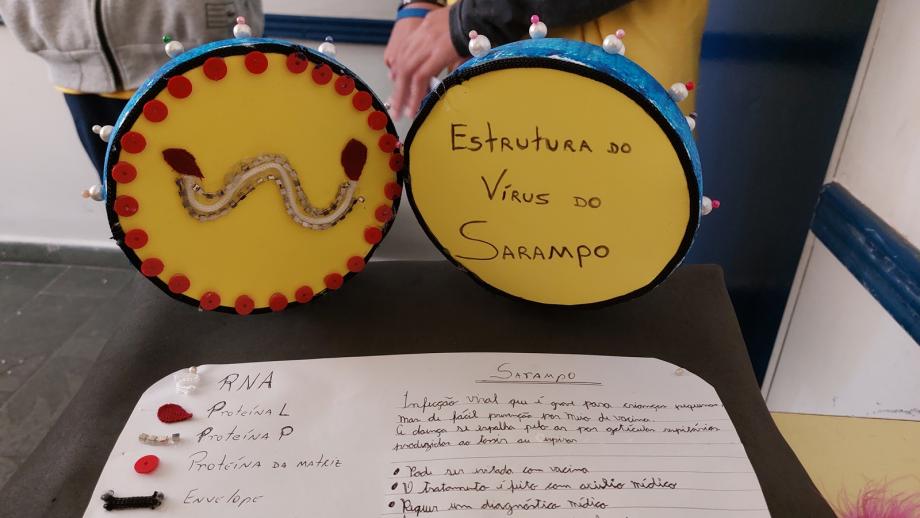 ESTRUTURA DO
VÍRUS DO
SARAMPO
RNA
PROTEÍNA L
PROTEÍNA P
PROTEÍNA DA MATRIZ
ENVELOPE
SARAMPO
Infecção viral que é grave para crianças pequenas
mas de fácil prevenção por meio de vacina.
A doença se espalha pelo ar por gotículas respiratórias
produzidas ao tossir ou espirrar
• Pode ser evitada com vacina
• O tratamento é feito com auxílio médico
• Requer um diagnóstico médico